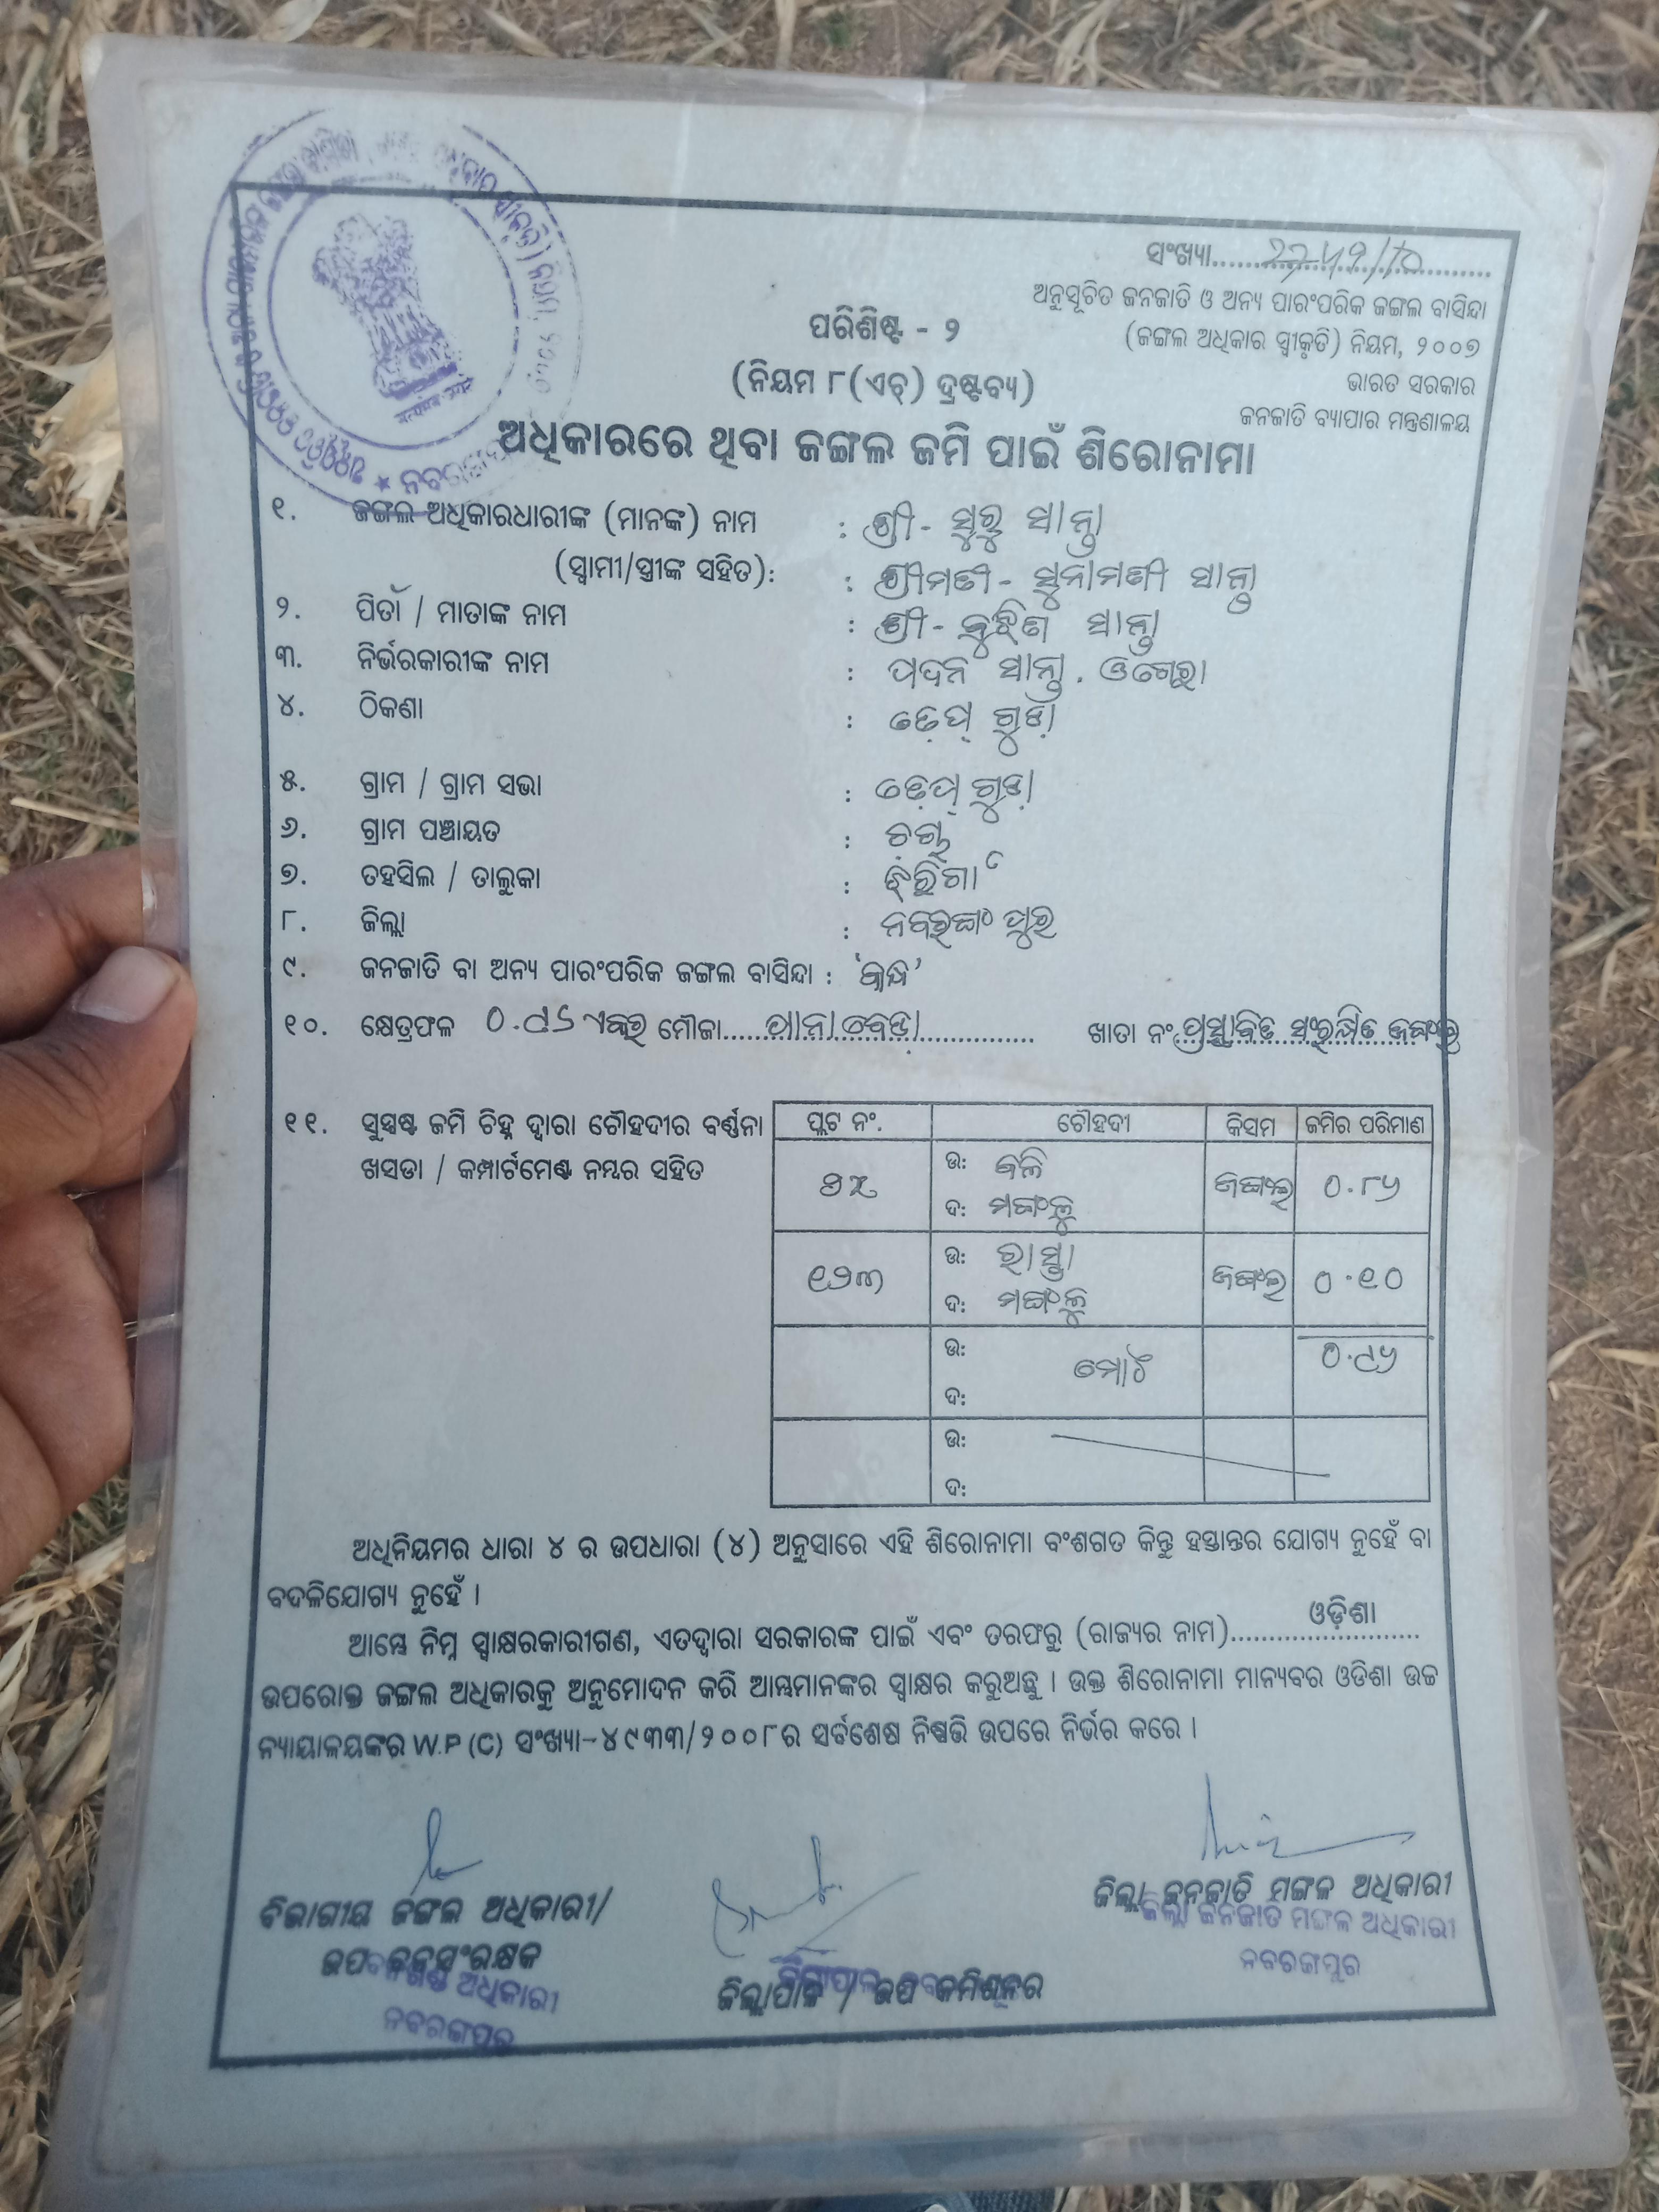 ସଂଖ୍ୟା..........
ଅନୁସୂଚିତ ଜନଜାତି ଓ ଅନ୍ୟ ପାରଂପରିକ ଜଙ୍ଗଲ ବାସିନ୍ଦା
(ଜଙ୍ଗଲ ଅଧିକାର ସ୍ୱୀକୃତି) ନିୟମ, ୨୦୦୭
ଭାରତ ସରକାର
ଜନଜାତି ବ୍ୟାପାର ମନ୍ତ୍ରଣାଳୟ
ପରିଶିଷ୍ଟ - ୨
(ନିୟମ ୮(ଏଚ୍) ଦ୍ରଷ୍ଟବ୍ୟ)
ଅଧିକାରରେ ଥିବା ଜଙ୍ଗଲ ଜମି ପାଇଁ ଶିରୋନାମା
୧. ଜଙ୍ଗଲ ଅଧିକାରଧାରୀଙ୍କ (ମାନଙ୍କ) ନାମ : ଶ୍ରୀ - ସୁରୁ ସାନ୍ତା
(ସ୍ୱାମୀ/ସ୍ତ୍ରୀଙ୍କ ସହିତ): : ଶ୍ରୀମତୀ - ସୁନାମଣୀ ସାନ୍ତା
୨. ପିତା / ମାତାଙ୍କ ନାମ : ଶ୍ରୀ - ସାନ୍ତା
୩. ନିର୍ଭରକାରୀଙ୍କ ନାମ : ସାନ୍ତା . ଓଗେରା
୪. ଠିକଣା :
୫. ଗ୍ରାମ / ଗ୍ରାମ ସଭା :
୬. ଗ୍ରାମ ପଞ୍ଚାୟତ :
୭. ତହସିଲ / ତାଲୁକା : ଝରିଗାଁ
୮. ଜିଲ୍ଲା : ନବରଙ୍ଗପୁର
୯. ଜନଜାତି ବା ଅନ୍ୟ ପାରଂପରିକ ଜଙ୍ଗଲ ବାସିନ୍ଦା : 'କନ୍ଧ'
୧୦. କ୍ଷେତ୍ରଫଳ ୦.୯୬ ଏକର ମୌଜା.....ପାନାବେଡା..... ଖାତା ନଂ ପ୍ରସ୍ତାବିତ ସଂରକ୍ଷିତ ଜଙ୍ଗଲ
୧୧. ସୁସ୍ପଷ୍ଟ ଜମି ଚିହ୍ନ ଦ୍ୱାରା ଚୌହଦୀର ବର୍ଣ୍ଣନା
ଖସଡା / କମ୍ପାର୍ଟମେଣ୍ଟ ନମ୍ବର ସହିତ
ପ୍ଲଟ ନଂ. ଚୌହଦୀ କିସମ ଜମିର ପରିମାଣ
ଉ: ବଳି
ଜଙ୍ଗଲ ୦.୮୬
ଦ: ମଙ୍ଗଳୁ
ଉ: ରାସ୍ତା
୧୨୩ ଜଙ୍ଗଲ ୦.୧୦
ଦ: ମଙ୍ଗଳୁ
ଉ:
ମୋଟ ୦.୯୬
ଦ:
ଉ:
ଦ:
ଅଧିନିୟମର ଧାରା ୪ ର ଉପଧାରା (୪) ଅନୁସାରେ ଏହି ଶିରୋନାମା ବଂଶଗତ କିନ୍ତୁ ହସ୍ତାନ୍ତର ଯୋଗ୍ୟ ନୁହେଁ ବା
ବଦଳିଯୋଗ୍ୟ ନୁହେଁ ।
ଆମ୍ଭେ ନିମ୍ନ ସ୍ୱାକ୍ଷରକାରୀଗଣ, ଏତଦ୍ୱାରା ସରକାରଙ୍କ ପାଇଁ ଏବଂ ତରଫରୁ (ରାଜ୍ୟର ନାମ).....ଓଡ଼ିଶା.....
ଉପରୋକ୍ତ ଜଙ୍ଗଲ ଅଧିକାରକୁ ଅନୁମୋଦନ କରି ଆମ୍ଭମାନଙ୍କର ସ୍ୱାକ୍ଷର କରୁଅଛୁ । ଉକ୍ତ ଶିରୋନାମା ମାନ୍ୟବର ଓଡିଶା ଉଚ୍ଚ
ନ୍ୟାୟାଳୟଙ୍କର W.P (C) ସଂଖ୍ୟା-୪୯୩୩/୨୦୦୮ର ସର୍ବଶେଷ ନିଷ୍ପତ୍ତି ଉପରେ ନିର୍ଭର କରେ ।
ବିଭାଗୀୟ ଜଙ୍ଗଲ ଅଧିକାରୀ/
ଉପ ବନସଂରକ୍ଷକ
ଅଧିକାରୀ
ନବରଙ୍ଗପୁର
ଜିଲ୍ଲାପାଳ / ଉପ କମିଶନର
ଜିଲ୍ଲା ଜନଜାତି ମଙ୍ଗଳ ଅଧିକାରୀ
ଜିଲ୍ଲା ଜନଜାତି ମଙ୍ଗଳ ଅଧିକାରୀ
ନବରଙ୍ଗପୁର